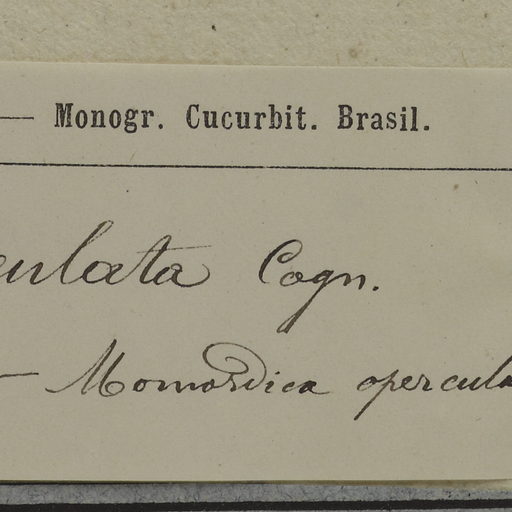 — Monogr. Cucurbit. Brasil.
culata Cogn.
— Momordica opercula